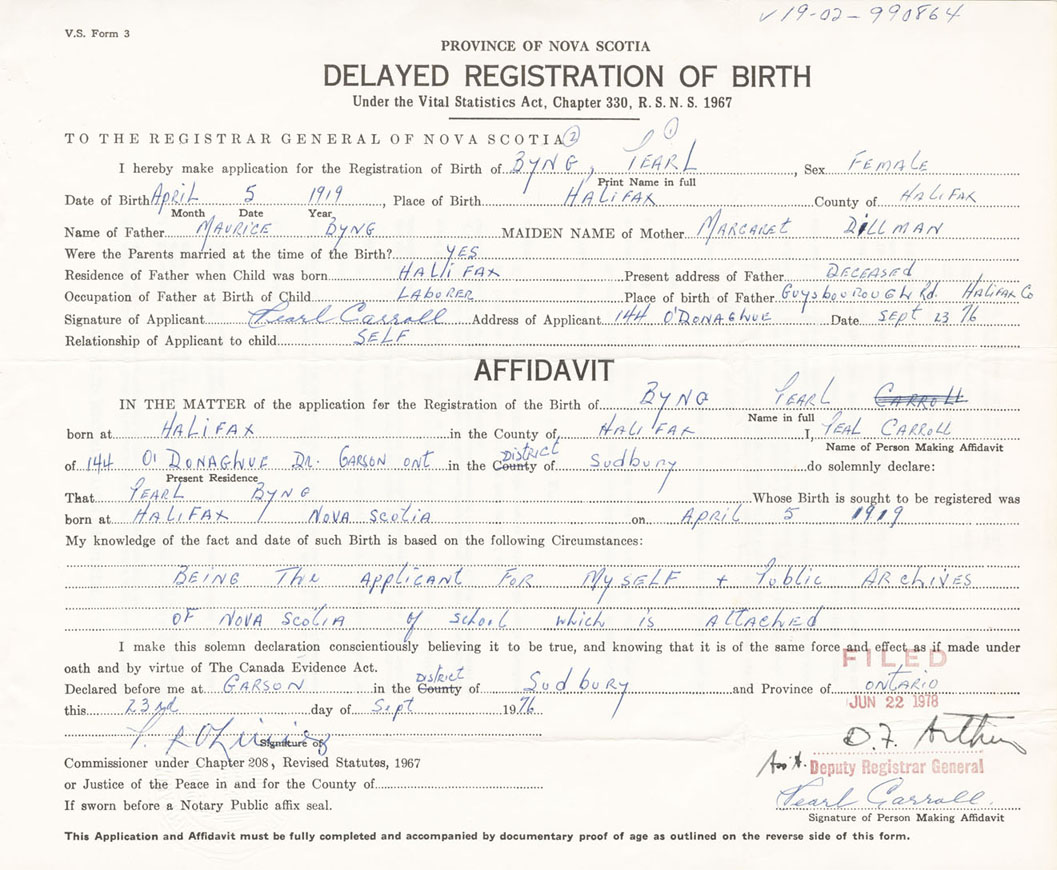 V 19-02-990864
V.S. Form 3
PROVINCE OF NOVA SCOTIA
DELAYED REGISTRATION OF BIRTH
Under the Vital Statistics Act, Chapter 330, R. S. N. S. 1967
TO THE REGISTRAR GENERAL OF NOVA SCOTIA 2 1
I hereby make application for the Registration of Birth of BYNG, PEARL, Sex FEMALE
Print Name in full
Date of Birth April 5 1919, Place of Birth HALIFAX County of HALIFAX
Month Date Year
Name of Father MAURICE BYNG MAIDEN NAME of Mother MARGARET DILLMAN
Were the Parents married at the time of the Birth? YES
Residence of Father when Child was born HALIFAX Present address of Father DECEASED
Occupation of Father at Birth of Child LABORER Place of birth of Father GUYSBOUROUGH Rd. HALIFAX Co
Signature of Applicant Pearl Carroll Address of Applicant 144 O'DONAGHUE Date SEPT 23 76
Relationship of Applicant to child SELF
AFFIDAVIT
IN THE MATTER of the application for the Registration of the Birth of BYNG PEARL CARROLL
Name in full
born at HALIFAX in the County of HALIFAX I, PEAL CARROLL
Name of Person Making Affidavit
of 144 O'DONAGHUE DR. GARSON ONT in the County District of Sudbury do solemnly declare:
Present Residence
That PEARL BYNG Whose Birth is sought to be registered was
born at HALIFAX NOVA SCOTIA on APRIL 5 1919
My knowledge of the fact and date of such Birth is based on the following Circumstances:
BEING The Applicant FOR MYSELF + Public ARCHIVES
OF NOVA SCOTIA of school which is ATTACHED
I make this solemn declaration conscientiously believing it to be true, and knowing that it is of the same force and effect as if made under
oath and by virtue of The Canada Evidence Act.
FILED
Declared before me at GARSON in the County District of Sudbury and Province of ONTARIO
this 23rd day of Sept 1976
JUN 22 1978
Signature of
Commissioner under Chapter 208, Revised Statutes, 1967
Ass't. Deputy Registrar General
or Justice of the Peace in and for the County of
Pearl Carroll
If sworn before a Notary Public affix seal.
Signature of Person Making Affidavit
This Application and Affidavit must be fully completed and accompanied by documentary proof of age as outlined on the reverse side of this form.